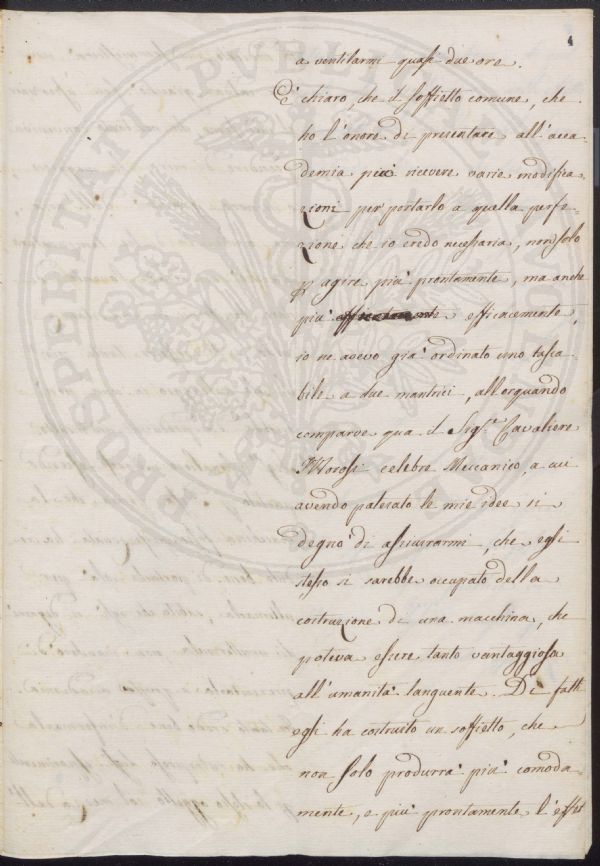 4
a ventilarmi quasi due ore.
E' chiaro, che il soffietto comune, che
ho l'onore di presentare all'acca-
demia può ricevere varie modifica-
zioni per portarlo a quella perfe-
zione che io credo necessaria, non solo
p agire più prontamente, ma anche
più efficacemente,
io ne avevo già ordinato uno tasca-
bile a due mantrici, allorquando
comparve qua il Sig.r Cavaliere
Morosi celebre Meccanico, a cui
avendo palesato le mie idee si
degnò di assicurarmi, che egli
stesso si sarebbe occupato della
costruzione di una macchina, che
poteva essere tanto vantaggiosa
all'umanità languente. Di fatti
egli ha costruito un soffietto, che
non solo produrrà più comoda-
mente, e più prontamente l'effet
PROSPERITATI PVBLICAE